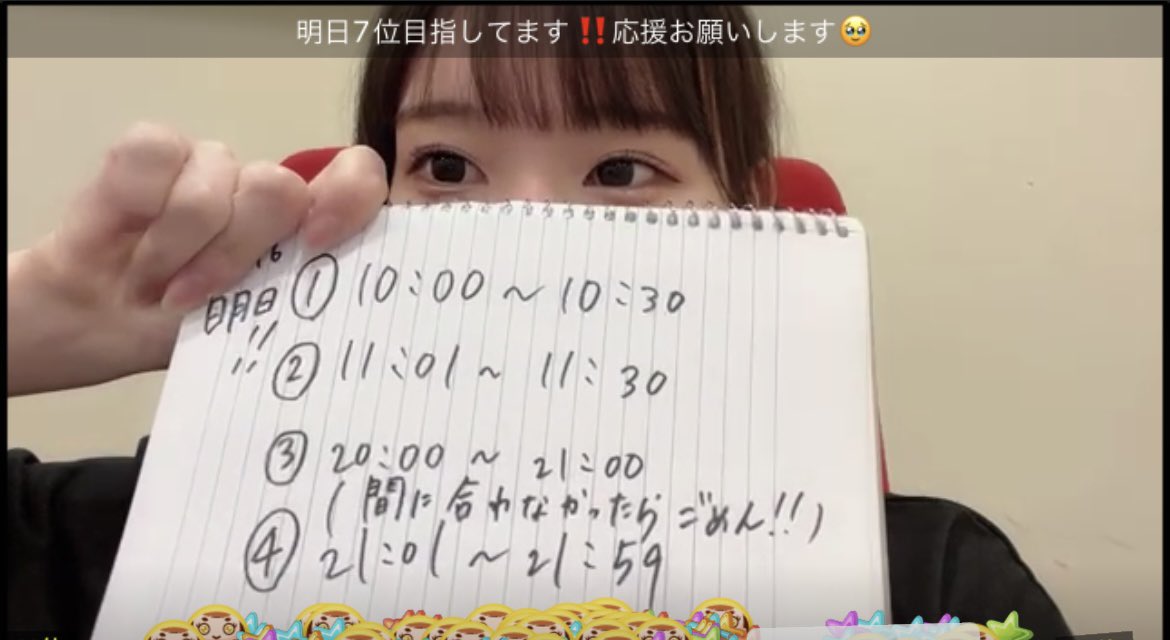 明日7位目指してます‼️応援お願いします🥹
明日!!
① 10:00 ~ 10:30
② 11:01 ~ 11:30
③ 20:00 ~ 21:00
(間に合わなかったらごめん!!)
④ 21:01 ~ 21:59